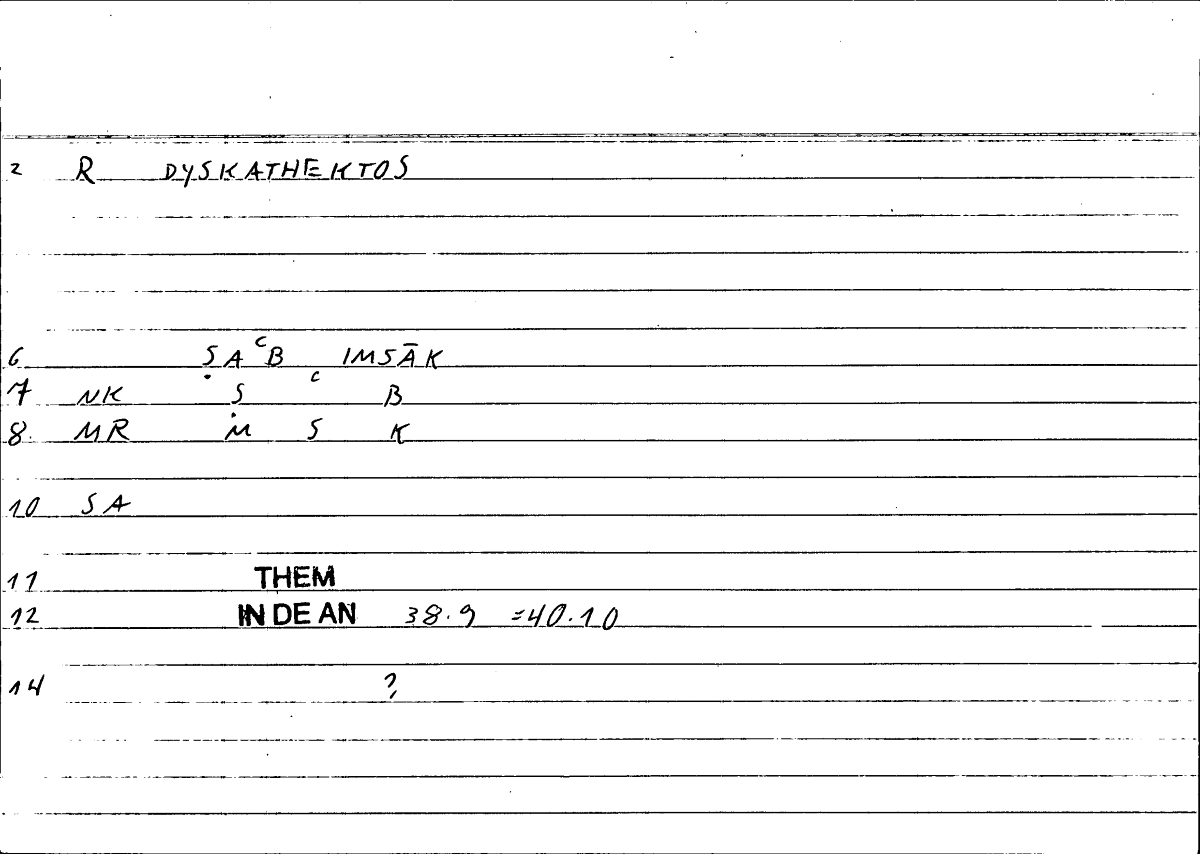 2 R DYSKATHEKTOS
6 ṢAᶜB IMSĀK
7 NK Ṣ ᶜ B
8. MR M S K
10 SA
11 THEM
12 IN DE AN 38.9 =40.10
14 ?